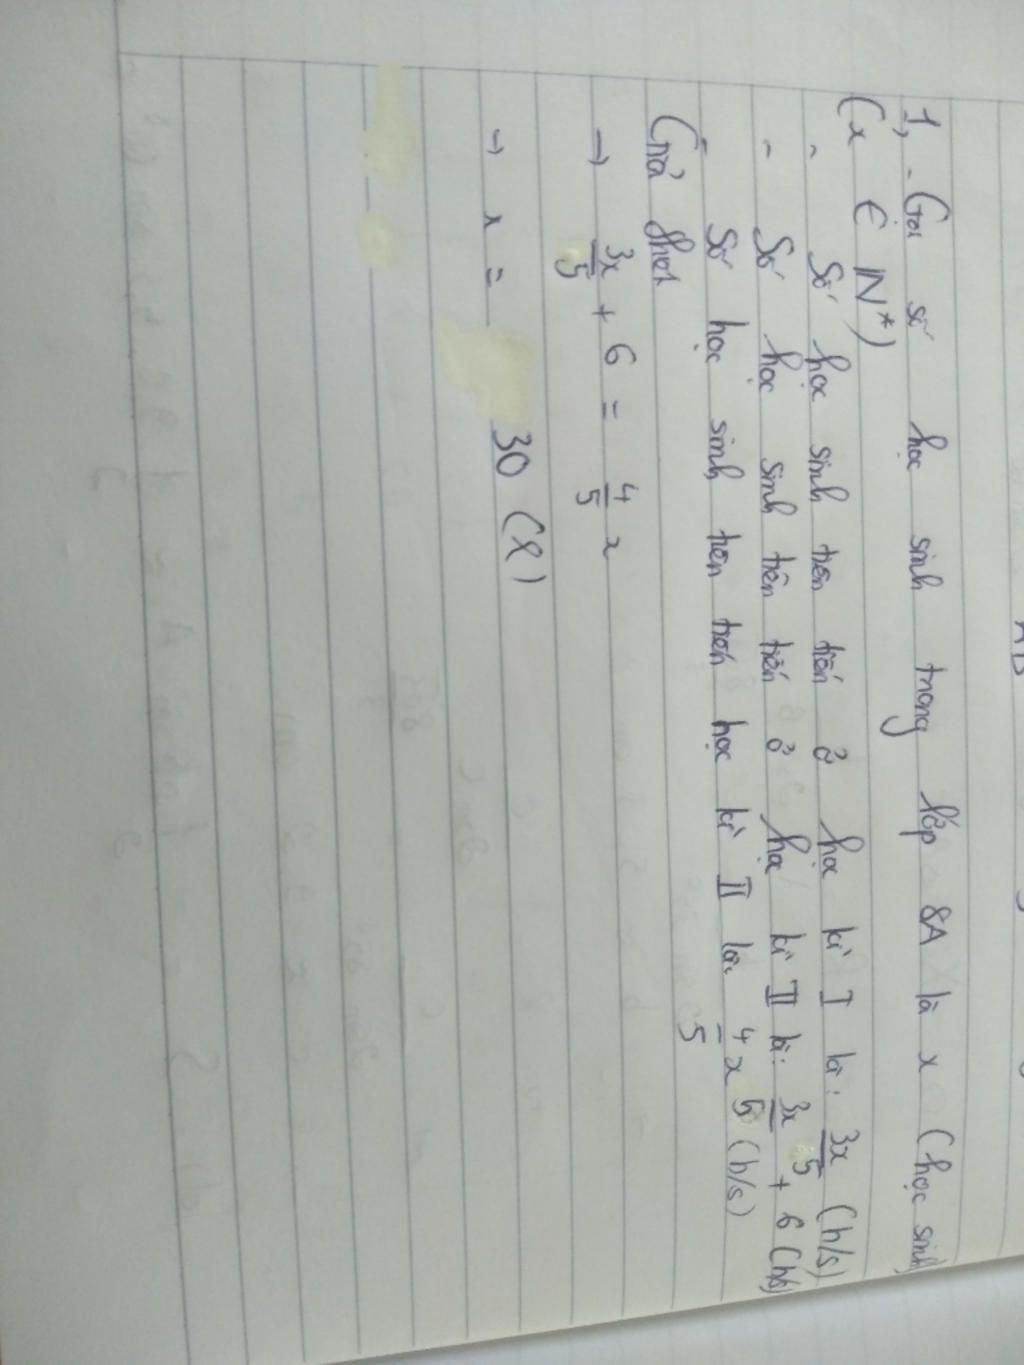 1, - Gọi số học sinh trong lớp 8A là x (học sinh)
(x ∈ N*)
- Số học sinh tiên tiến ở học kì I là: 3x/5 (h/s)
- Số học sinh tiên tiến ở học kì II là: 3x/5 + 6 (h/s)
- Số học sinh tiên tiến học kì II là 4/5 x (h/s)
→ 3x/5 + 6 = 4/5 x
→ x = 30